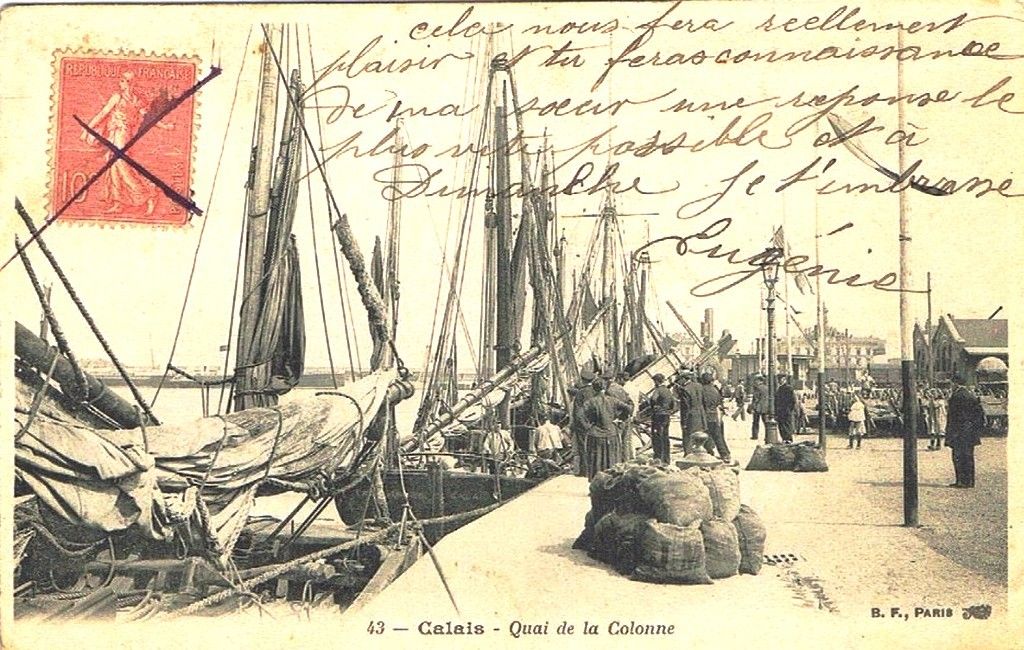 cela nous fera reellement
plaisir et tu feras connaissance
de ma soeur une reponse le
plus vite possible et à
Dimanche je t'embrasse
Eugénie
REPUBLIQUE FRANÇAISE
10
43 — Calais - Quai de la Colonne
B. F., PARIS